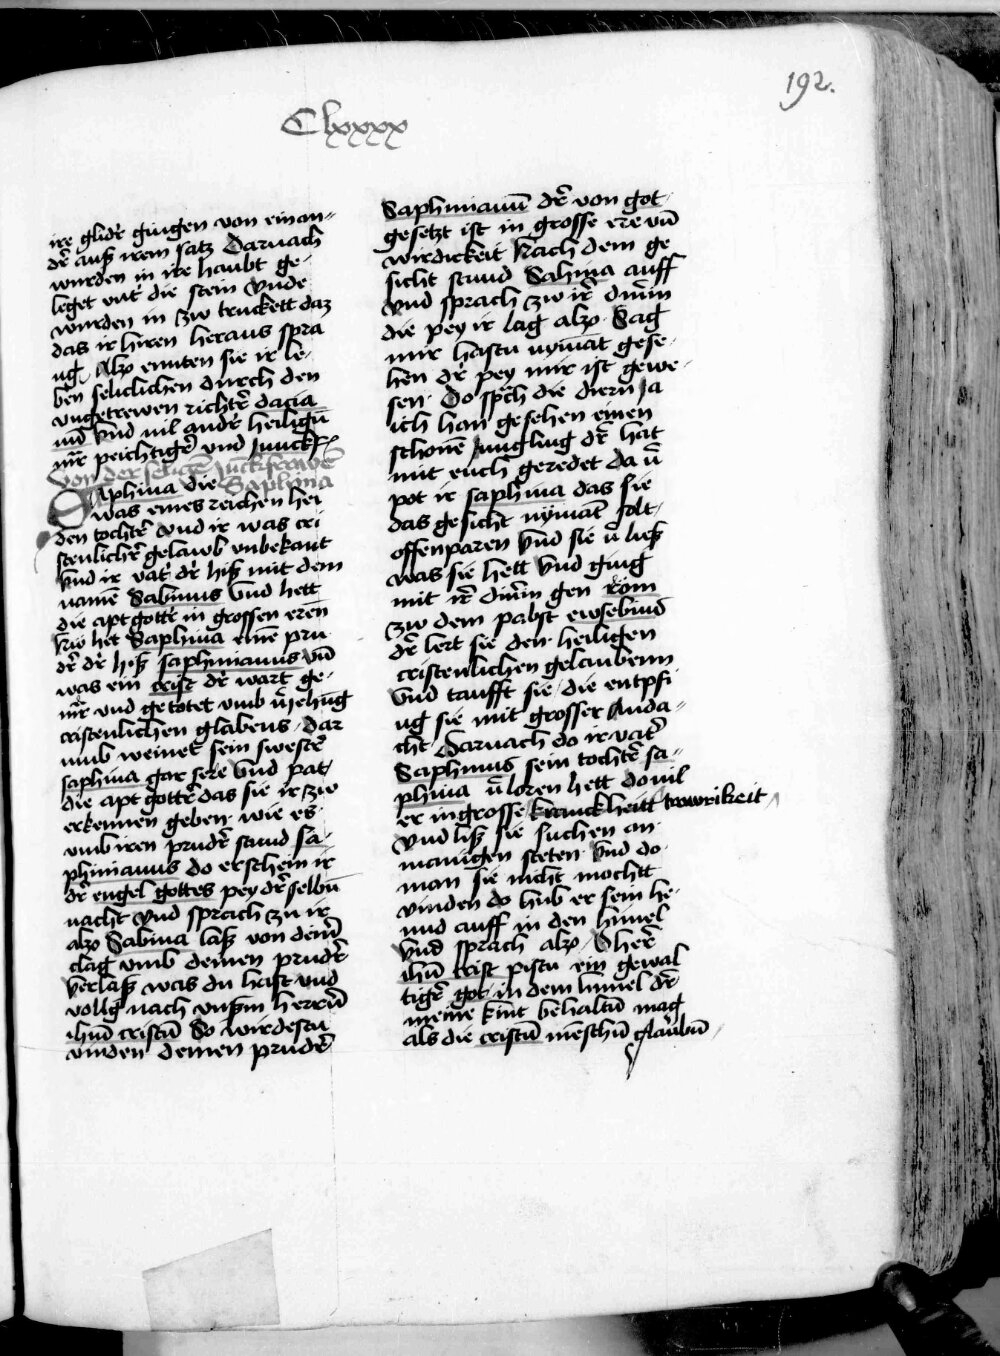 192.
Clxxxx
ire glidr̄ gingen von einan-
dr̄ auß irem satz Darnach
wurden in ire haubt ge-
leget vnt̄ die stein Vnde
wurden in zw truckett daz
das ir hiren heraus spra
ng Alzo ennten sie ir le-
ben seliclichen durch den
vngetrewen richtr̄ dacia
nū Vnd vil andr̄ heiligū
mr̄ peichtigr̄ vnd Junckf
Von der seligē Juckfrawē
Saphina die Saphina
was eines reichen hei
den tochtr̄ Vnd ir was cri
stenlichr̄ gelawb vnbekant
Vnd ir vatr̄ dr̄ hiß mit dem
namē Sabinus Vnd hett
die aptgottr̄ in grossen eren
Nw het Saphina eine pru
dr̄ dr̄ hiß saphinianus vn̄
was ein crist dr̄ wart ge-
mr̄ vnd getotet vmb v̄iehūg
cristenlichen glabens Dar
vmb weinet sein swestr̄
saphina gar sere Vnd pat
die apt gottr̄ das sie ir zw
erkennen geben wie es
vmb iren prudr̄ stund sa-
phinianus do erschein ir
dr̄ engel gottes pey dr̄ selbn̄
nacht Vnd sprach zu ir
alzo Sabina laß von deinr̄
clag vmb deinen prudr̄
Verlaß was du hast vnd
vollg nach vnßm herrn̄
ihū cristū So wirdestu
vinden deinen prudr̄
Saphinianū dr̄ von got
gesetzt ist in grosse ere vn̄
wirdickeit Nach dem ge
sicht stund Sahina auff
Vnd sprach zw ir̄ dirn̄
die pey ir lag alzo Sag
mir hastu nymāt gese-
hen dr̄ pey mir ist gewe-
sen Do spch die diern Ja
ich han gesehen einen
schonē Jungling dr̄ hat
mit euch geredet da v̄
pot ir saphina das sie
das gesicht nymāt solt
offenparen Vnd sie v̄ ließ
was sie hett Vnd ging
mit ir̄ dirn̄ gen Rom
zw dem pabst ewsebiūs
dr̄ lert sie den heiligen
cristenlichen gelaubenn
Vnd taufft sie die entpfi
ng sie mit grosser Anda-
cht Darnach do ir vatr̄
Saphinus sein tochtr̄ sa-
phina v̄loren hett do vil
er in grosse kranckheitt trawrikeit
Vnd liß sie suchen an
manigen steten Vnd do
man sie nicht mochtt
vinden do hub er sein he-
nnd auff in den himel
Vnd sprach alzo O herr̄
ihū crist pistu ein gewal
tigr̄ got in dem himel dr̄
meine kint behaltn̄ mag
als die cristn̄ mēschn̄ glaubn̄